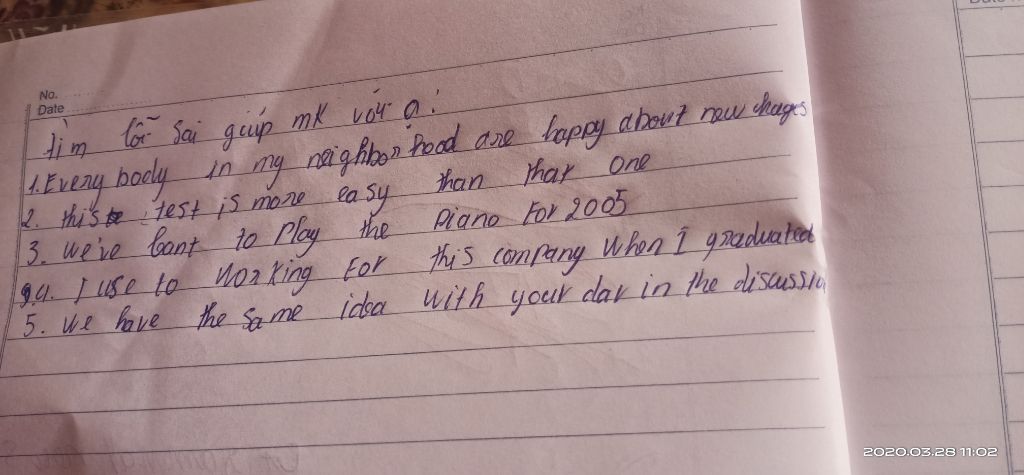 No.
Date
Tìm lỗi sai giúp mk với ạ!
1. Every body in my neighborhood are happy about new chages
2. this test is more easy than that one
3. we've lant to Play the Piano For 2005
4. I use to working For this company when I graduated
5. we have the same idea with your dar in the discussio
2020.03.28 11:02